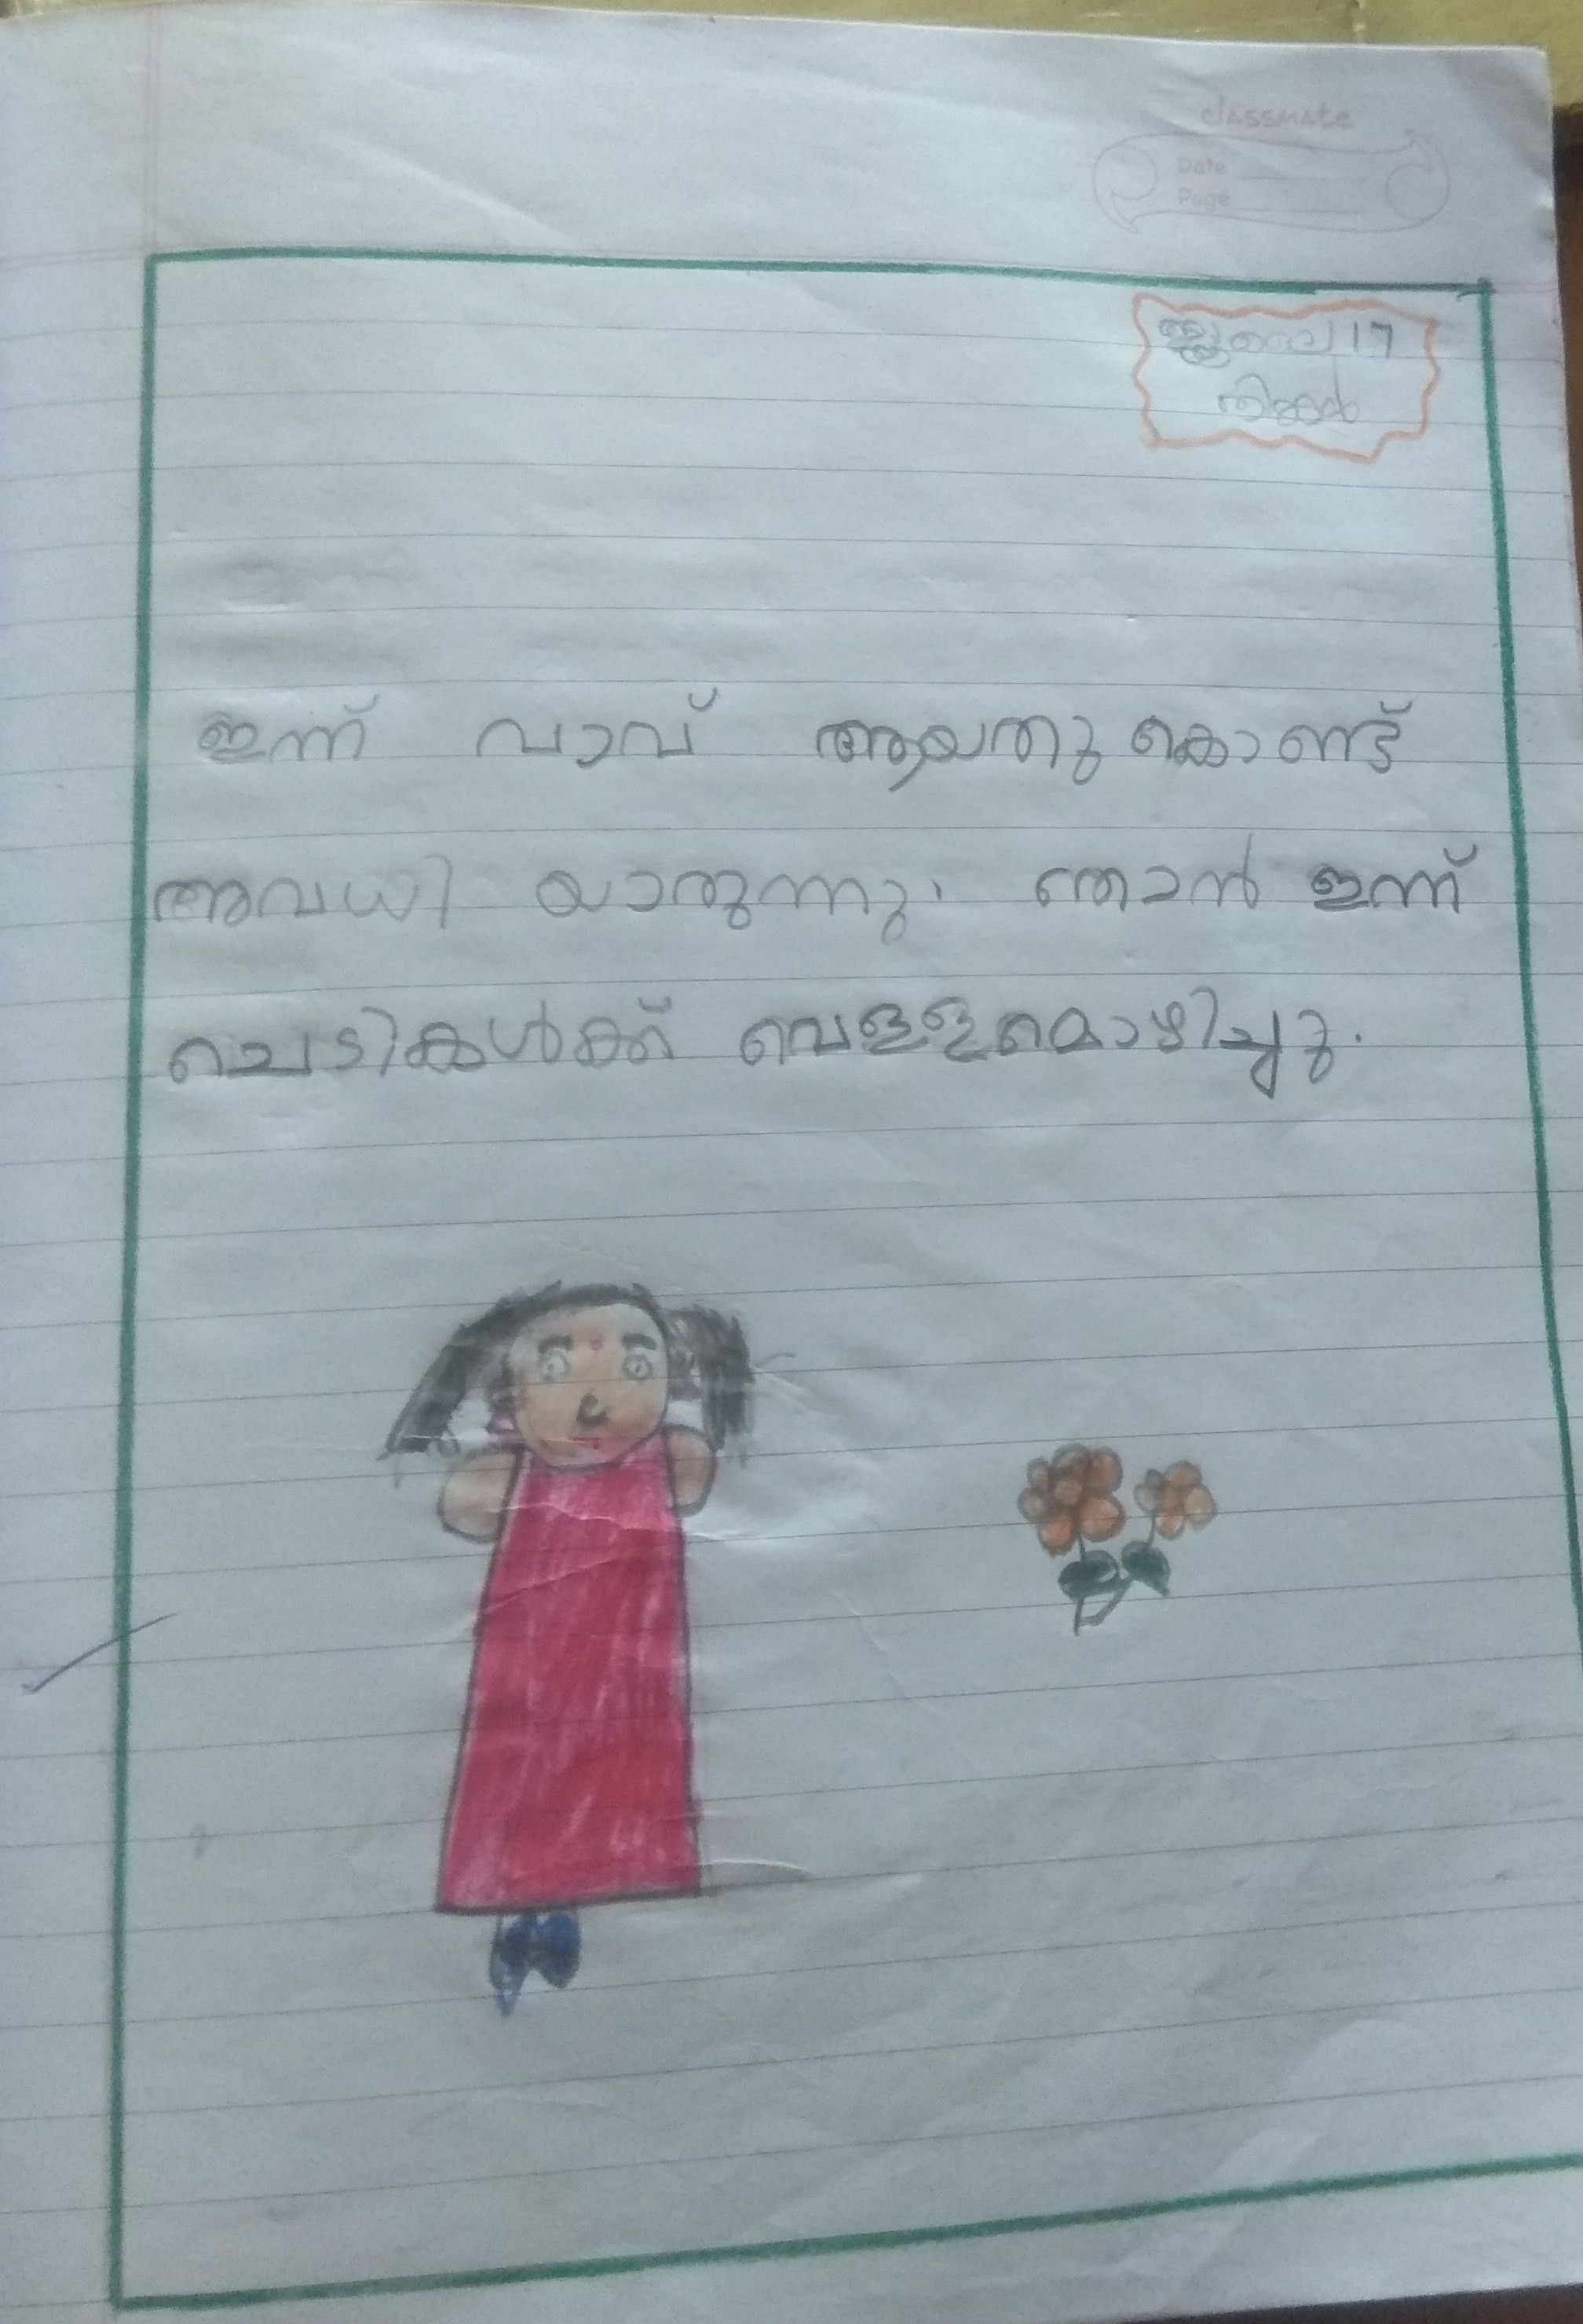 classmate
Date
Page
ജൂലൈ 17
തിങ്കൾ
ഇന്ന് വാവ് ആയതുകൊണ്ട്
അവധി യാരുന്നു. ഞാൻ ഇന്ന്
ചെടികൾക്ക് വെള്ളമൊഴിച്ചു.